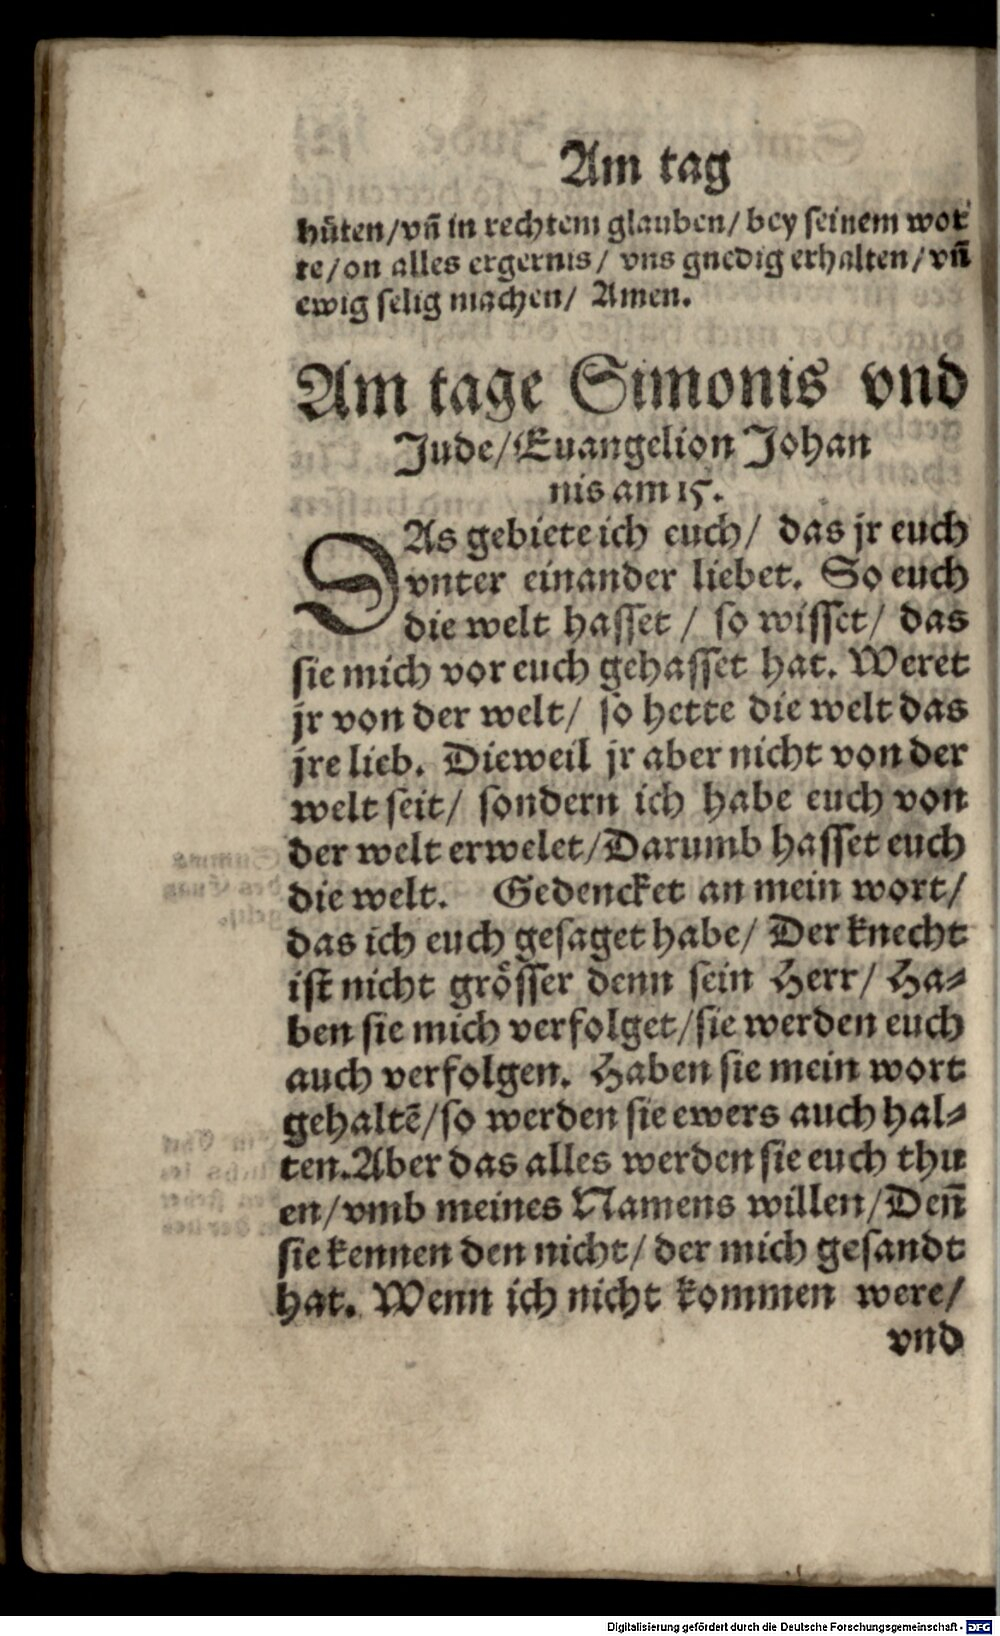 Am tag
huͤten/vñ in rechtem glauben/bey seinem wor
te/on alles ergernis/ vns gnedig erhalten/vñ
ewig selig machen/ Amen.
Am tage Simonis vnd
Jude/Euangelion Johan
nis am 15.
DAs gebiete ich euch/ das jr euch
vnter einander liebet. So euch
die welt hasset/ so wisset/ das
sie mich vor euch gehasset hat. Weret
jr von der welt/ so hette die welt das
jre lieb. Dieweil jr aber nicht von der
welt seit/ sondern ich habe euch von
der welt erwelet/Darumb hasset euch
die welt. Gedencket an mein wort/
das ich euch gesaget habe/ Der knecht
ist nicht groͤsser denn sein Herr/ Ha⸗
ben sie mich verfolget/sie werden euch
auch verfolgen. Haben sie mein wort
gehaltẽ/so werden sie ewers auch hal⸗
ten.Aber das alles werden sie euch thu
en/vmb meines Namens willen/Deñ
sie kennen den nicht/der mich gesandt
hat. Wenn ich nicht kommen were/
vnd
Digitalisierung gefördert durch die Deutsche Forschungsgemeinschaft - DFG